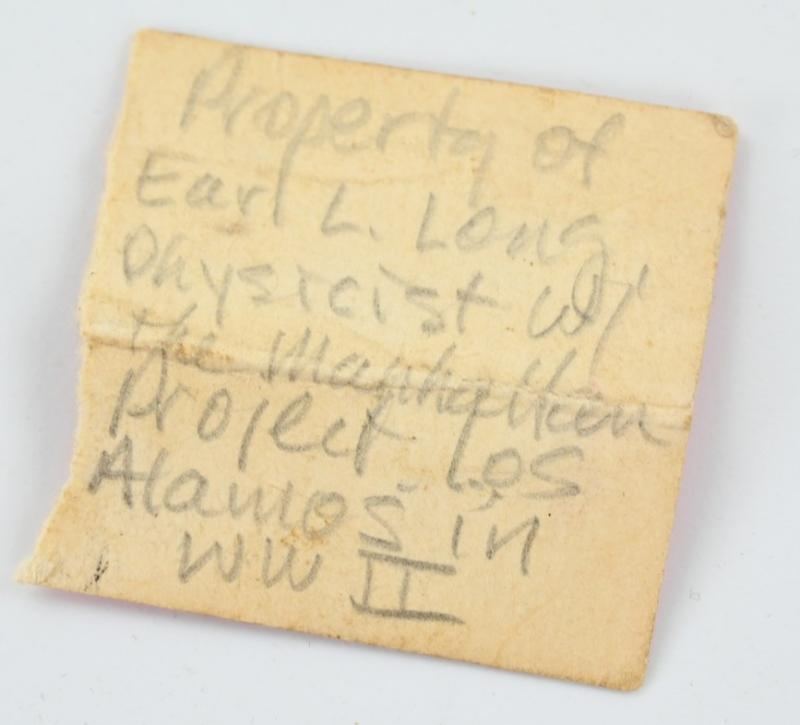 Property of
Earl L. Long,
Physicist w/
the Manhattan
Project Los
Alamos in
WW II